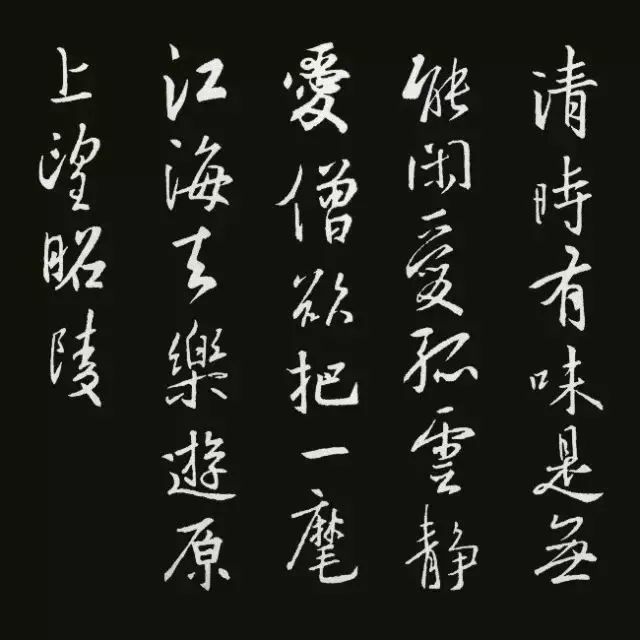 清時有味是無
能閑愛孤雲静
愛僧欲把一麾
江海去樂遊原
上望昭陵